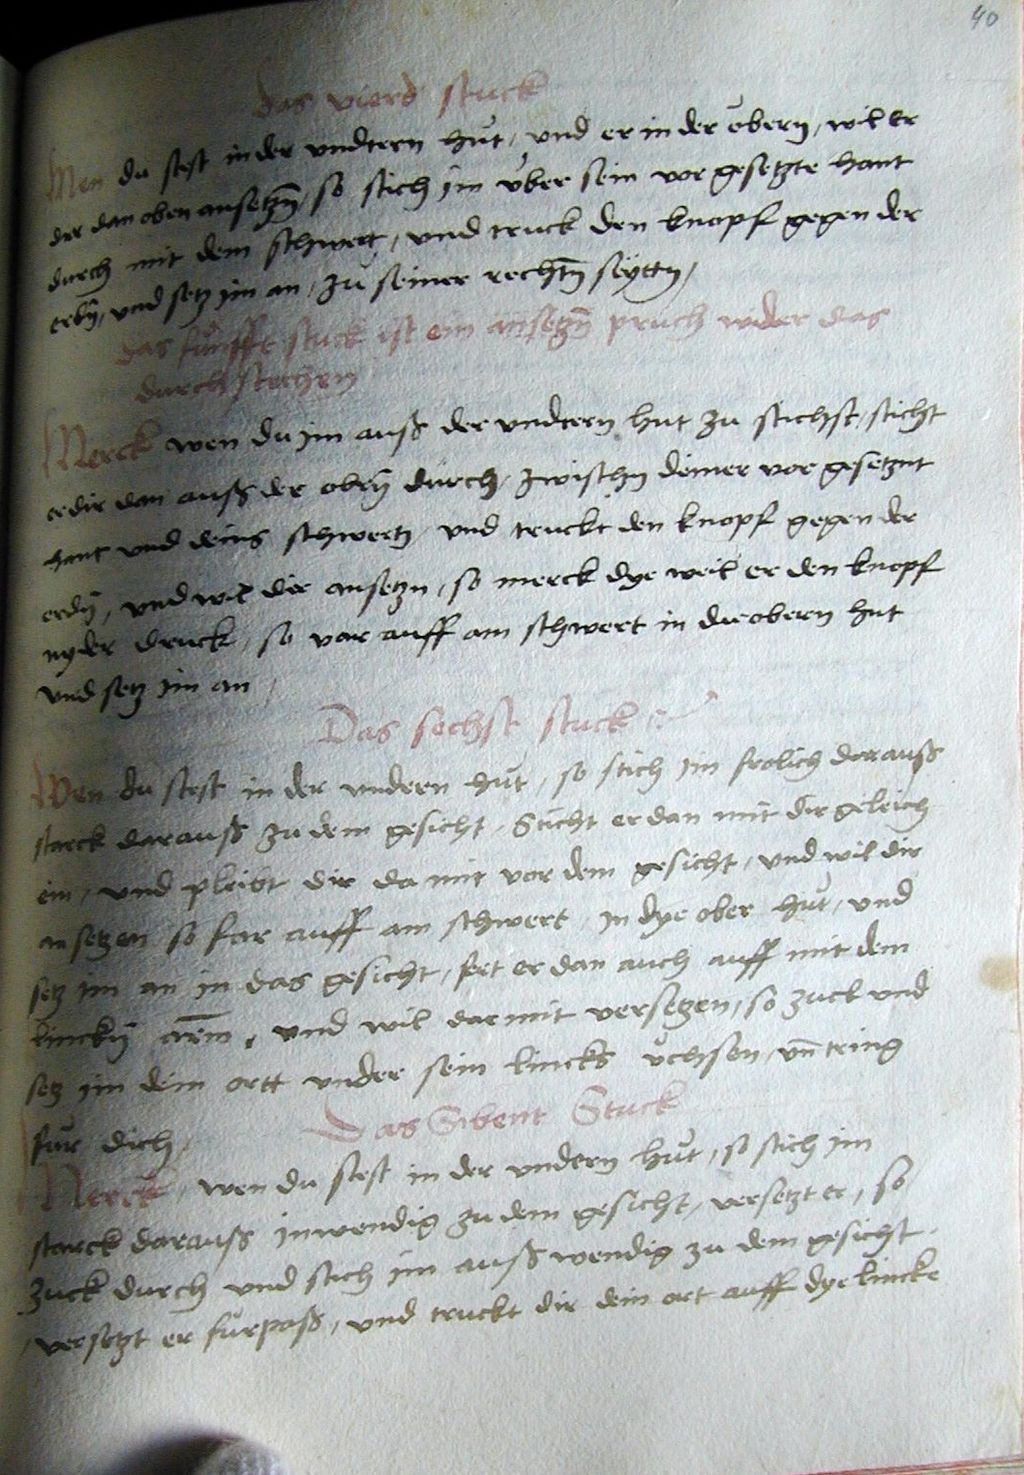 40
das vierd stuck
Wen du stest in der vndtern hut / vnd er in der obern / wil er
dir dan oben ansetzñ / so stich im vber sein vor gesetzte hant
durch mit dem schwert / vnd truck den knopf gegen der
erdñ / vnd setz im an / zu seiner rechtñ seyttn /
Das fünffte stuck ist ein ansetzñ pruch wider das
durch stechen
Merck wen du im auß der vndtern hut zu stichst / sticht
er dir dan auß der obrñ durch / zwischn deiner vor gesetznt
hant vnd deins schwertz / vnd truckt den knopf gegen der
erdñ / vnd wil dir ansetzn / so merck dye weil er den knopf
nyder druck / so var auff am schwert in die obern hut
vnd setz im an /
Das sechst stuck
Wen du stest in der vndern hut / so stich im frolich dorauß
starck darauß zu dem gesicht / Sticht er dan mit dir geleich
ein / vnd pleibt dir da mit vor dem gesicht / vnd wil dir
an setzen so far auff am schwert / in dye ober hut / vnd
setz im an in das gesicht / fert er dan auch auff mit dem
linckñ arm / vnd wil dar mit versetzen / so zuck vnd
setz im dein ortt vnder sein lincks vchsen / vñ tring
fur dich /
Das Sibent Stuck
Merck / wen du stest in der vndern hut / so stich im
starck dorauß inwendig zu dem gesicht / versetzt er / so
zuck durch vnd stich im auß wendig zu dem gesicht /
versetzt er furpaß / vnd truckt dir dein ort auff dye lincke